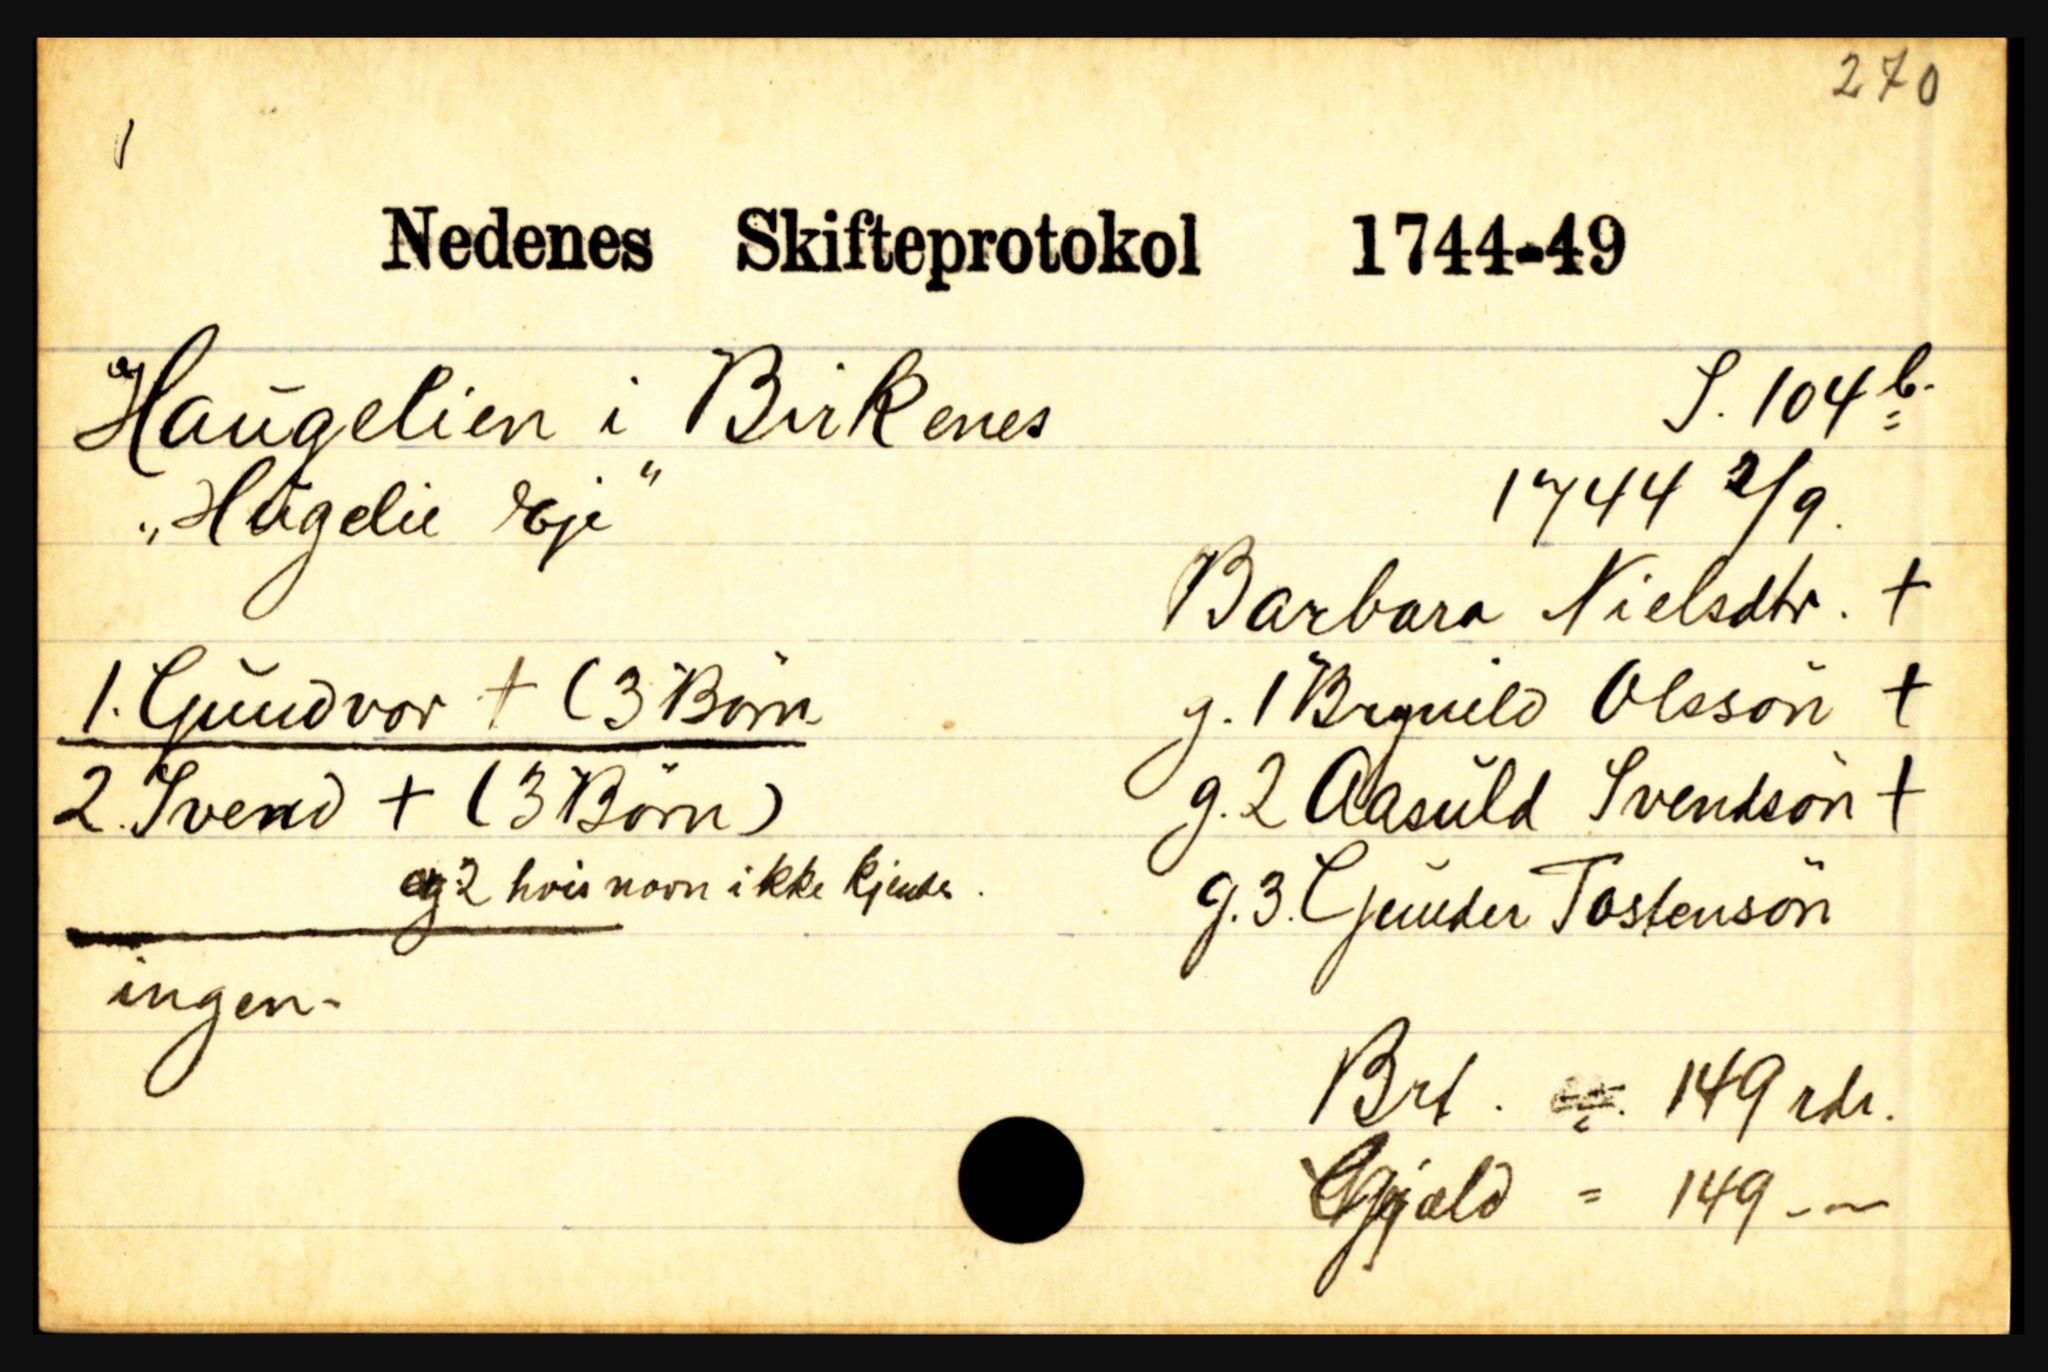 270
1
Nedenes Skifteprotokol 1744-49
Haugelien i Birkenes S. 104 b.
„Hugelie Eje" 1744 2/9.
Barbara Nielsdtr. +
1. Gundvor + (3 Börn g. 1 Brynild Olssön +
2. Svend + (3 Börn) g. 2 Aasuld Svendsön +
og 2 hvis navn ikke kjendes. g. 3. Gunder Tostensön
ingen-
Brt. 149 rdr.
Gjæld = 149 - —